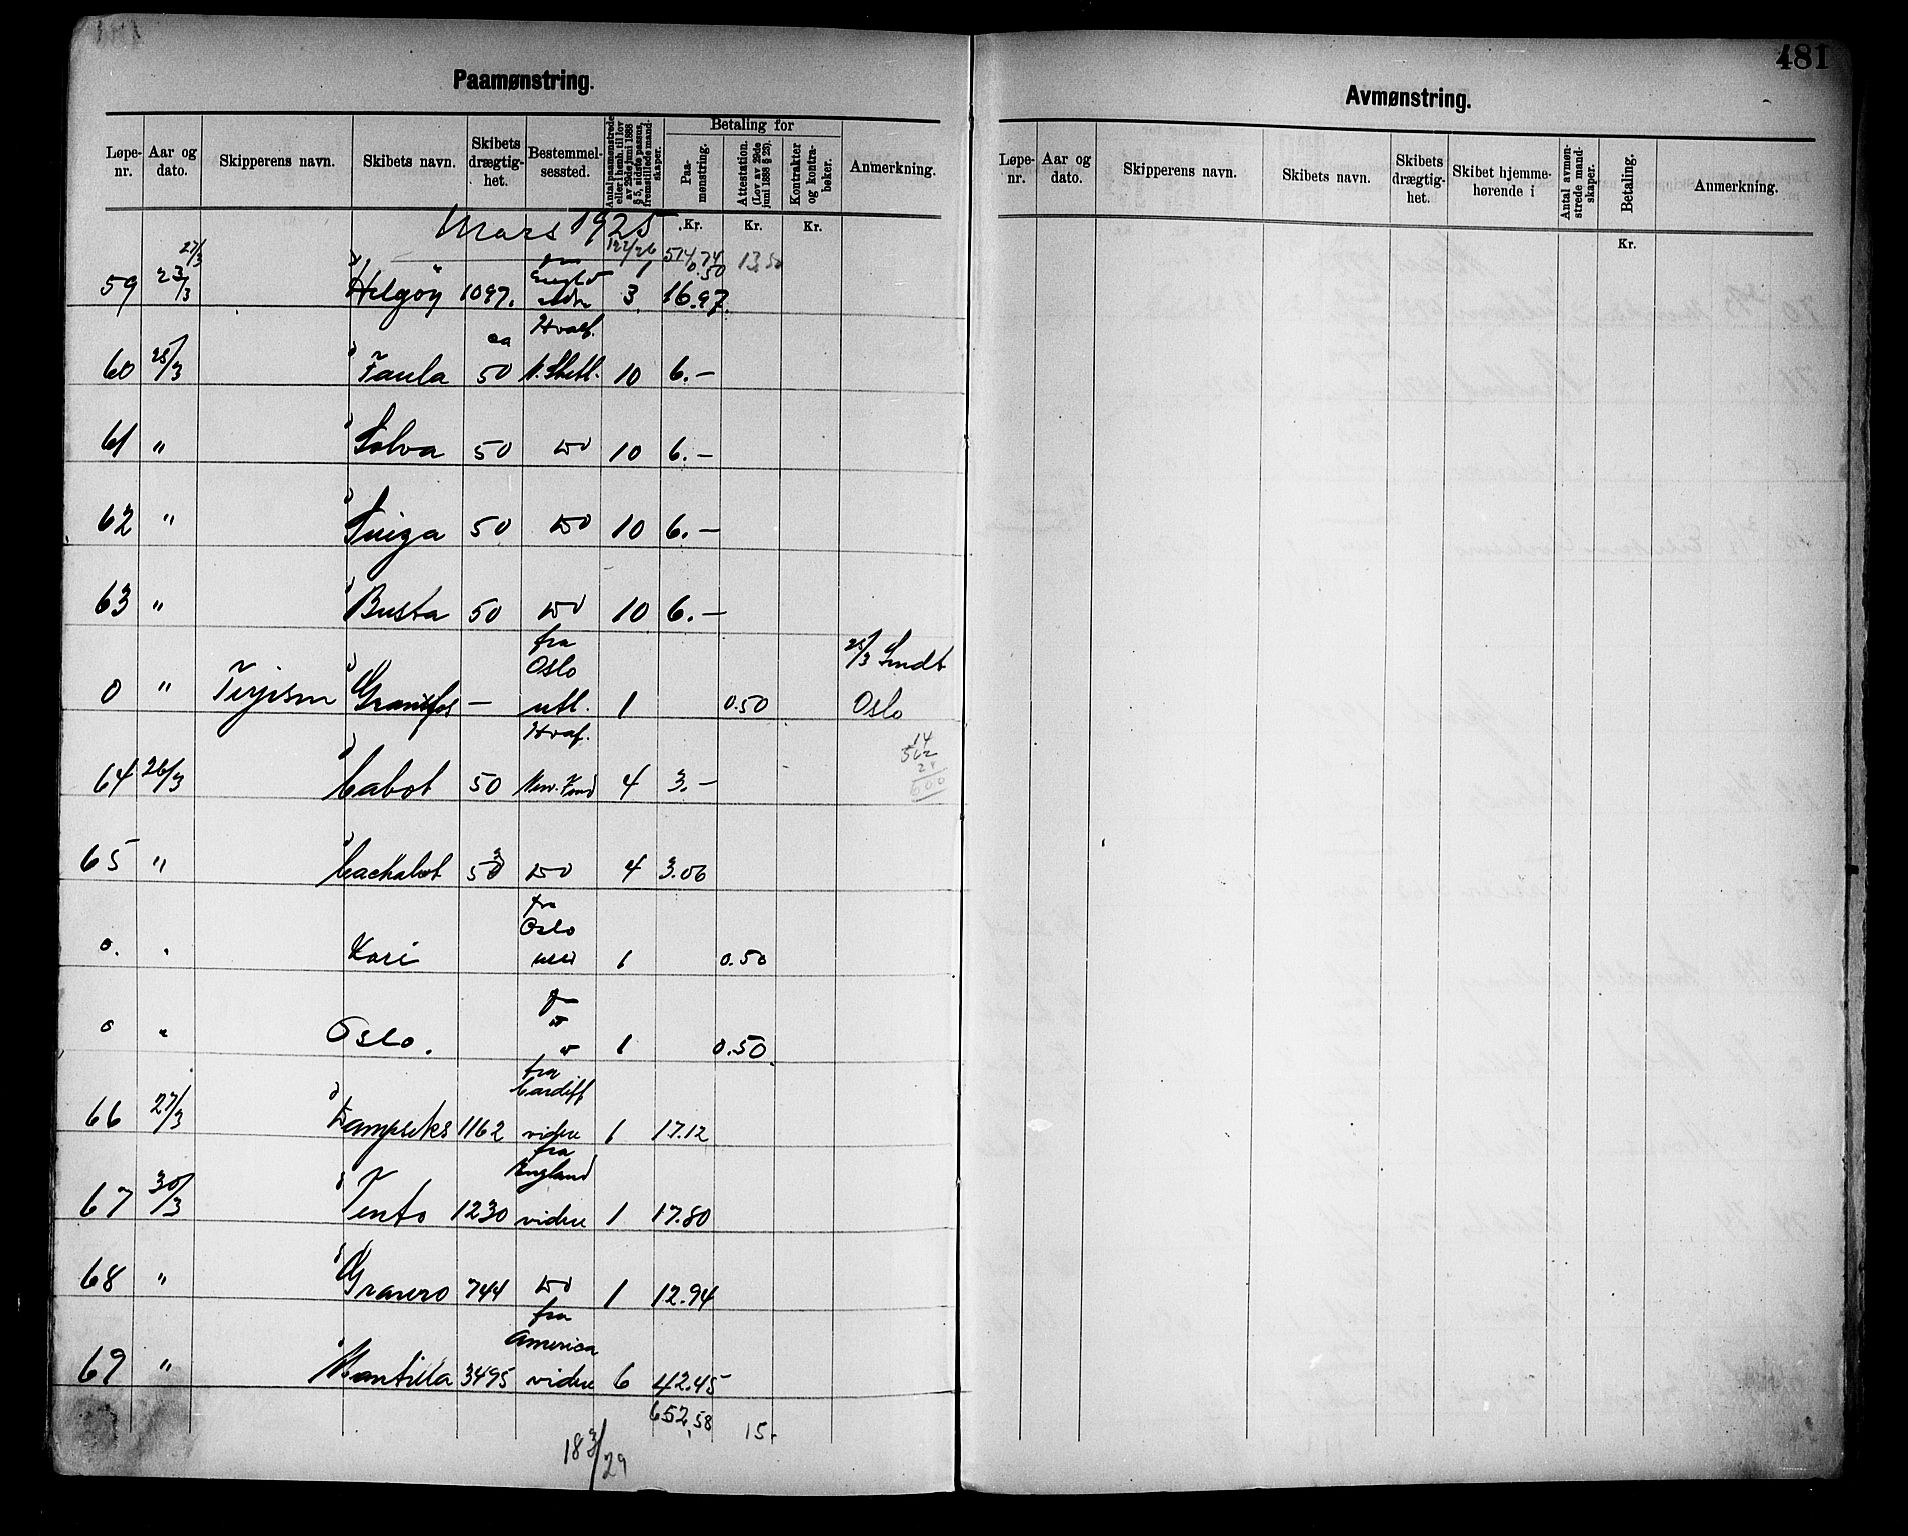 481
Paamønstring.
Løpe-nr. Aar og dato. Skipperens navn. Skibets navn. Skibets drægtig-het. Bestemmel-sessted. Antal paamønstrede eller i henh. til lov av 29de juni 1888 § 5, sidste passus, fremstillede mand-skaper. Betaling for Paa-mønstring. Attestation. (Lov av 29de juni 1888 § 23). Kontrakter og kontra-bøker. Anmerkning.
Mars 1925 Kr. Kr. Kr.
27/3 122/26 514.74 13.50
1 0.50
59 23/3 Helgøy 1097. 3 16.97
ca Hvalf.
60 25/3 Faula 50 N. Shetl. 10 6.-
61 " Solva 50 do 10 6.-
62 " 50 do 10 6.-
63 " Busta 50 do 10 6.-
fra Oslo 25/3 Sendt
0 " Granfos - utl. 1 0.50 Oslo
Hvalf. 14
64 26/3 Cabot 50 New. Fond 4 3.- 600
65 " Cachalot 50 do 4 3.00
fra Oslo
0. " Kari 1 0.50
fra
0 " Oslo. 1 0.50
fra Cardiff
66 27/3 1162 videre 1 17.12
fra England
67 30/3 Tento 1230 videre 1 17.80
68 " Granero 744 do 1 12.94
fra America
69 " Mantilla 3495 videre 6 42.45
652.58 15.-
183/29
Avmønstring.
Løpe-nr. Aar og dato. Skipperens navn. Skibets navn. Skibets drægtig-het. Skibet hjemme-hørende i Antal avmøn-strede mand-skaper. Betaling. Anmerkning.
Kr.